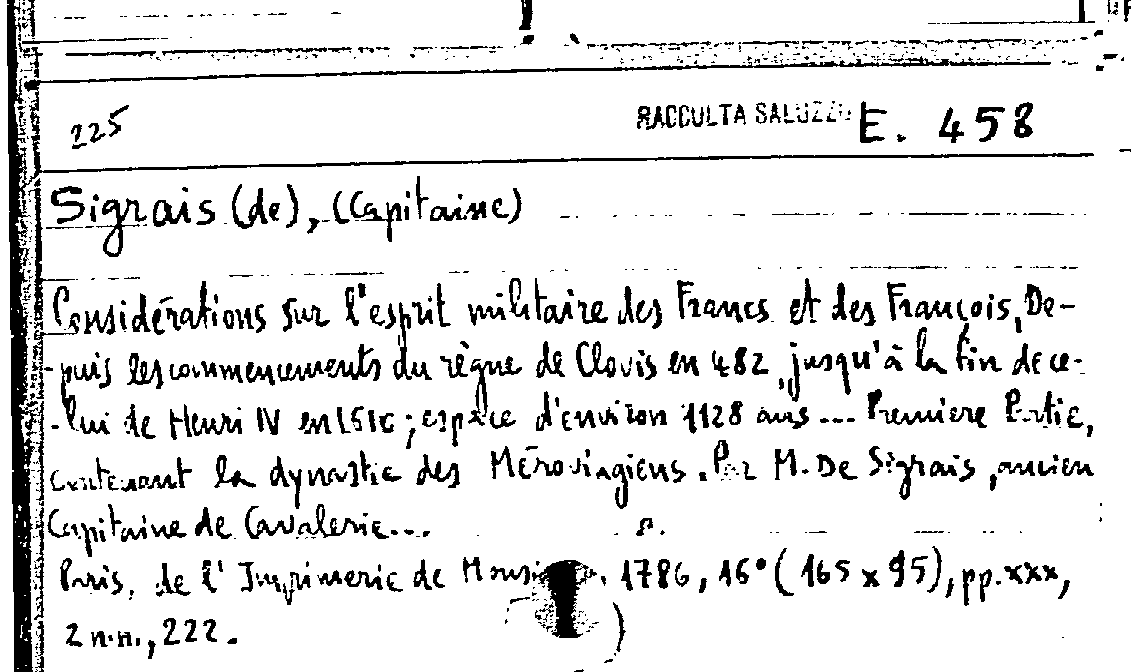 225 RACCOLTA SALUZZO E. 458
Sigrais (de), (Capitaine)
Considérations sur l'esprit militaire des Francs et des François, De-
-puis les commencements du règne de Clovis en 482, jusqu'à la fin de ce-
-lui de Henri IV en 1610; espace d'environ 1128 ans... Premiere Partie,
contenant la dynastie des Mérovingiens. Par M. De Sigrais, ancien
Capitaine de Cavalerie...
Paris, de l'Imprimerie de 1786, 16° (165 x 95), pp. xxx,
2 n.n., 222.